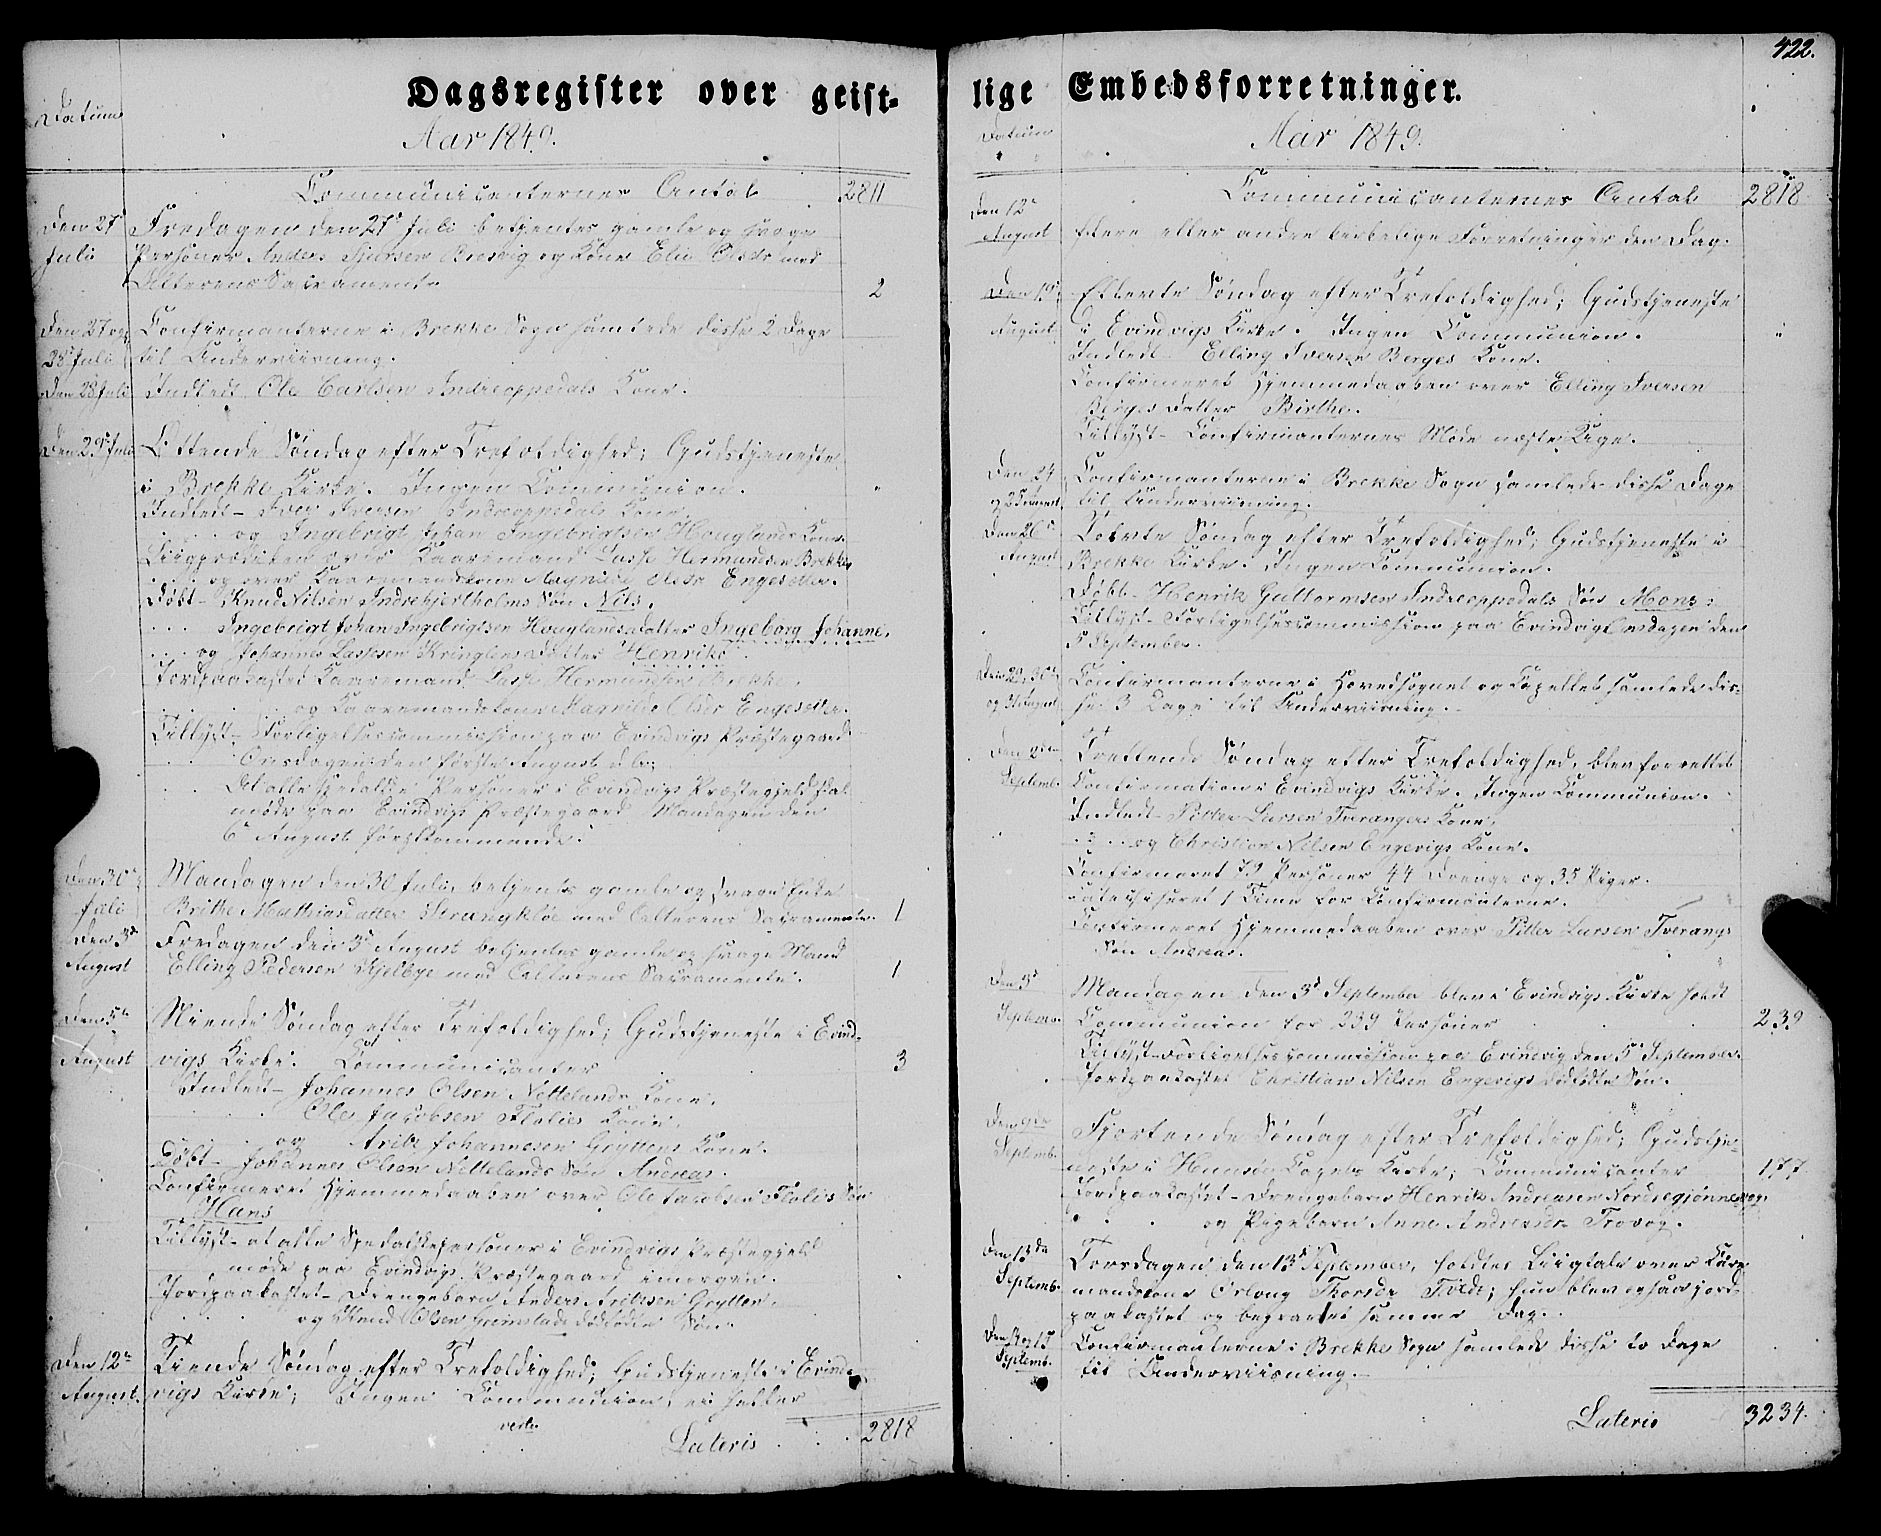 Dagsregister over geist-
Datum
Aar 1849.
Communicanternes Antal 2811
Den 27de Juli
Fredagen den 27de Juli betjentes gamle og svage
Personer Anders Siursen Brosvig og Kone Elii Olsdr med
Alterens Sacramente 2
Den 27 og 28de Juli
Confirmanterne i Brekke Sogn samlede disse 2 Dage
til Underviisning.
Den 28 Juli
Indledt Ole Carlsen Indreoppedals Kone.
Den 29de Juli
Ottende Søndag efter Trefoldighed; Gudstjeneste
i Brekke Kirke. Ingen Communion. "
Indledt - Iver Iversen Indreoppedals Kone
og Ingebrigt Johan Ingebrigtsen Houglands Kone.
Liigprædiken over Kaaremand Lasse Hermundsen Brekke
og over Kaaremandskone Magnilde Olsdr Engesetter.
Døbt - Knud Nilsen Indrehjertholms Søn Nils,
Ingebrigt Johan Ingebrigtsen Houglands Datter Ingeborg Johanne,
og Johannes Lassesen Kringlens Datter Henrikke.
Jordpaakastet Kaaremand Lasse Hermundsen Brekke,
og Kaaremandskone Magnilde Olsdr Engesetter.
Tillyst - Forligelsescommission paa Evindvigs Præstegaard
Onsdagen den første August d. A.;
At alle spedalske Personer i Evindvigs Præstegjeld skal
møde paa Evindvigs Præstegaard Mandagen den
6te August førstkommende.
Den 30te Juli
Mandagen den 30 Juli betjentes gamle og svage Enke
Brithe Mathiasdatter Strængkløe med Alterens Sacramente. 1
Den 3de August
Fredagen den 3de August betjentes gamle og svage Mand
Elling Pedersen Kjelbye med Alterens Sacramente. 1
Den 5te August
Niende Søndag efter Trefoldighed; Gudstjeneste i Evind-
vigs Kirke. Communicanter 3
Indledt - Johannes Olsen Nettelands Kone,
Ole Jacobsen Flolies Kone,
og Arile Johannesen Gryttens Kone.
Døbt - Johannes Olsen Nettelands Søn Andreas.
Confirmeret Hjemmedaaben over Ole Jacobsen Flolies Søn
Hans
Tillyst - at alle Spedalskepersoner i Evindvigs Præstegjeld
møde paa Evindvigs Præstegaard imorgen.
Jordpaakastet - Drengebarn Anders Arilsen Grytten,
og Knud Olsen Grimstads dødfødte Søn.
Den 12te August.
Tiende Søndag efter Trefoldighed; Gudstjeneste i Evind-
vigs Kirke; Ingen Communion, ei heller
verte
Lateris 2818
lige Embedsforretninger.
422.
Datum
Aar 1849.
Communicanternes Antal 2818
Den 12te August
flere eller andre kirkelige Forretninger den Dag.
Den 19de August
Ellevte Søndag efter Trefoldighed; Gudstjeneste
i Evindvigs Kirke. Ingen Communion. "
Indledt - Elling Iversen Berges Kone.
Confirmeret Hjemmedaaben over Elling Iversen
Berges Datter Birthe.
Tillyst - Confirmanternes Møde næste Uge.
Den 24 og 25 August
Confirmanterne i Brekke Sogn samlede disse Dage
til Underviisning.
Den 26de August
Tolvte Søndag efter Trefoldighed; Gudstjeneste i
Brekke Kirke. Ingen Communion.
Døbt - Henrik Guttormsen Indreoppedals Søn Mons.
Tillyst - Forligelsescommission paa Evindvig Onsdagen den
5 September.
Den 29, 30te og 31 August
Confirmanterne i Hovedsognet og Capellet samlede dis-
se 3 Dage til Underviisning.
Den 2den Septemb.
Trettende Søndag efter Trefoldighed, blev forrettet
Confirmation i Evindvigs Kirke. Ingen Communion.
Indledt - Pitter Larsen Tverangers Kone,
og Christian Nilsen Engevigs Kone.
Confirmeret 79 Personer 44 Drenge og 35 Piger.
catechiseret 1 Time for Confirmanterne.
Confirmeret Hjemmedaaben over Pitter Larsen Tverangs
Søn Andreas.
Den 3de Septemb.
Mandagen den 3de September blev i Evindvigs Kirke holdt
Communion for 239 Personer 239
Tillyst - Forligelsescommission paa Evindvig den 5te September.
Jordpaakastet Christian Nilsen Engevigs dødfødte Søn.
Den 9de Septemb.
Fjortende Søndag efter Trefoldighed; Gudstje-
neste i Husøe Capels Kirke; Communicanter 177
Jordpaakastet - Drengebarn Henrik Andreasen Nordregjønnevog,
og Pigebarn Anne Andreasdr Trovog.
Den 13de Septemb.
Torsdagen den 13de September, holdtes Liigtale over Kaare-
mandskone Orloug Thorsdr Tvedt; hun blev ogsaa jord-
paakastet og begravet samme Dag.
Septemb.
Confirmanterne i Brekke Sogn samlede disse to Dage
til Underviisning.
Lateris 3234.